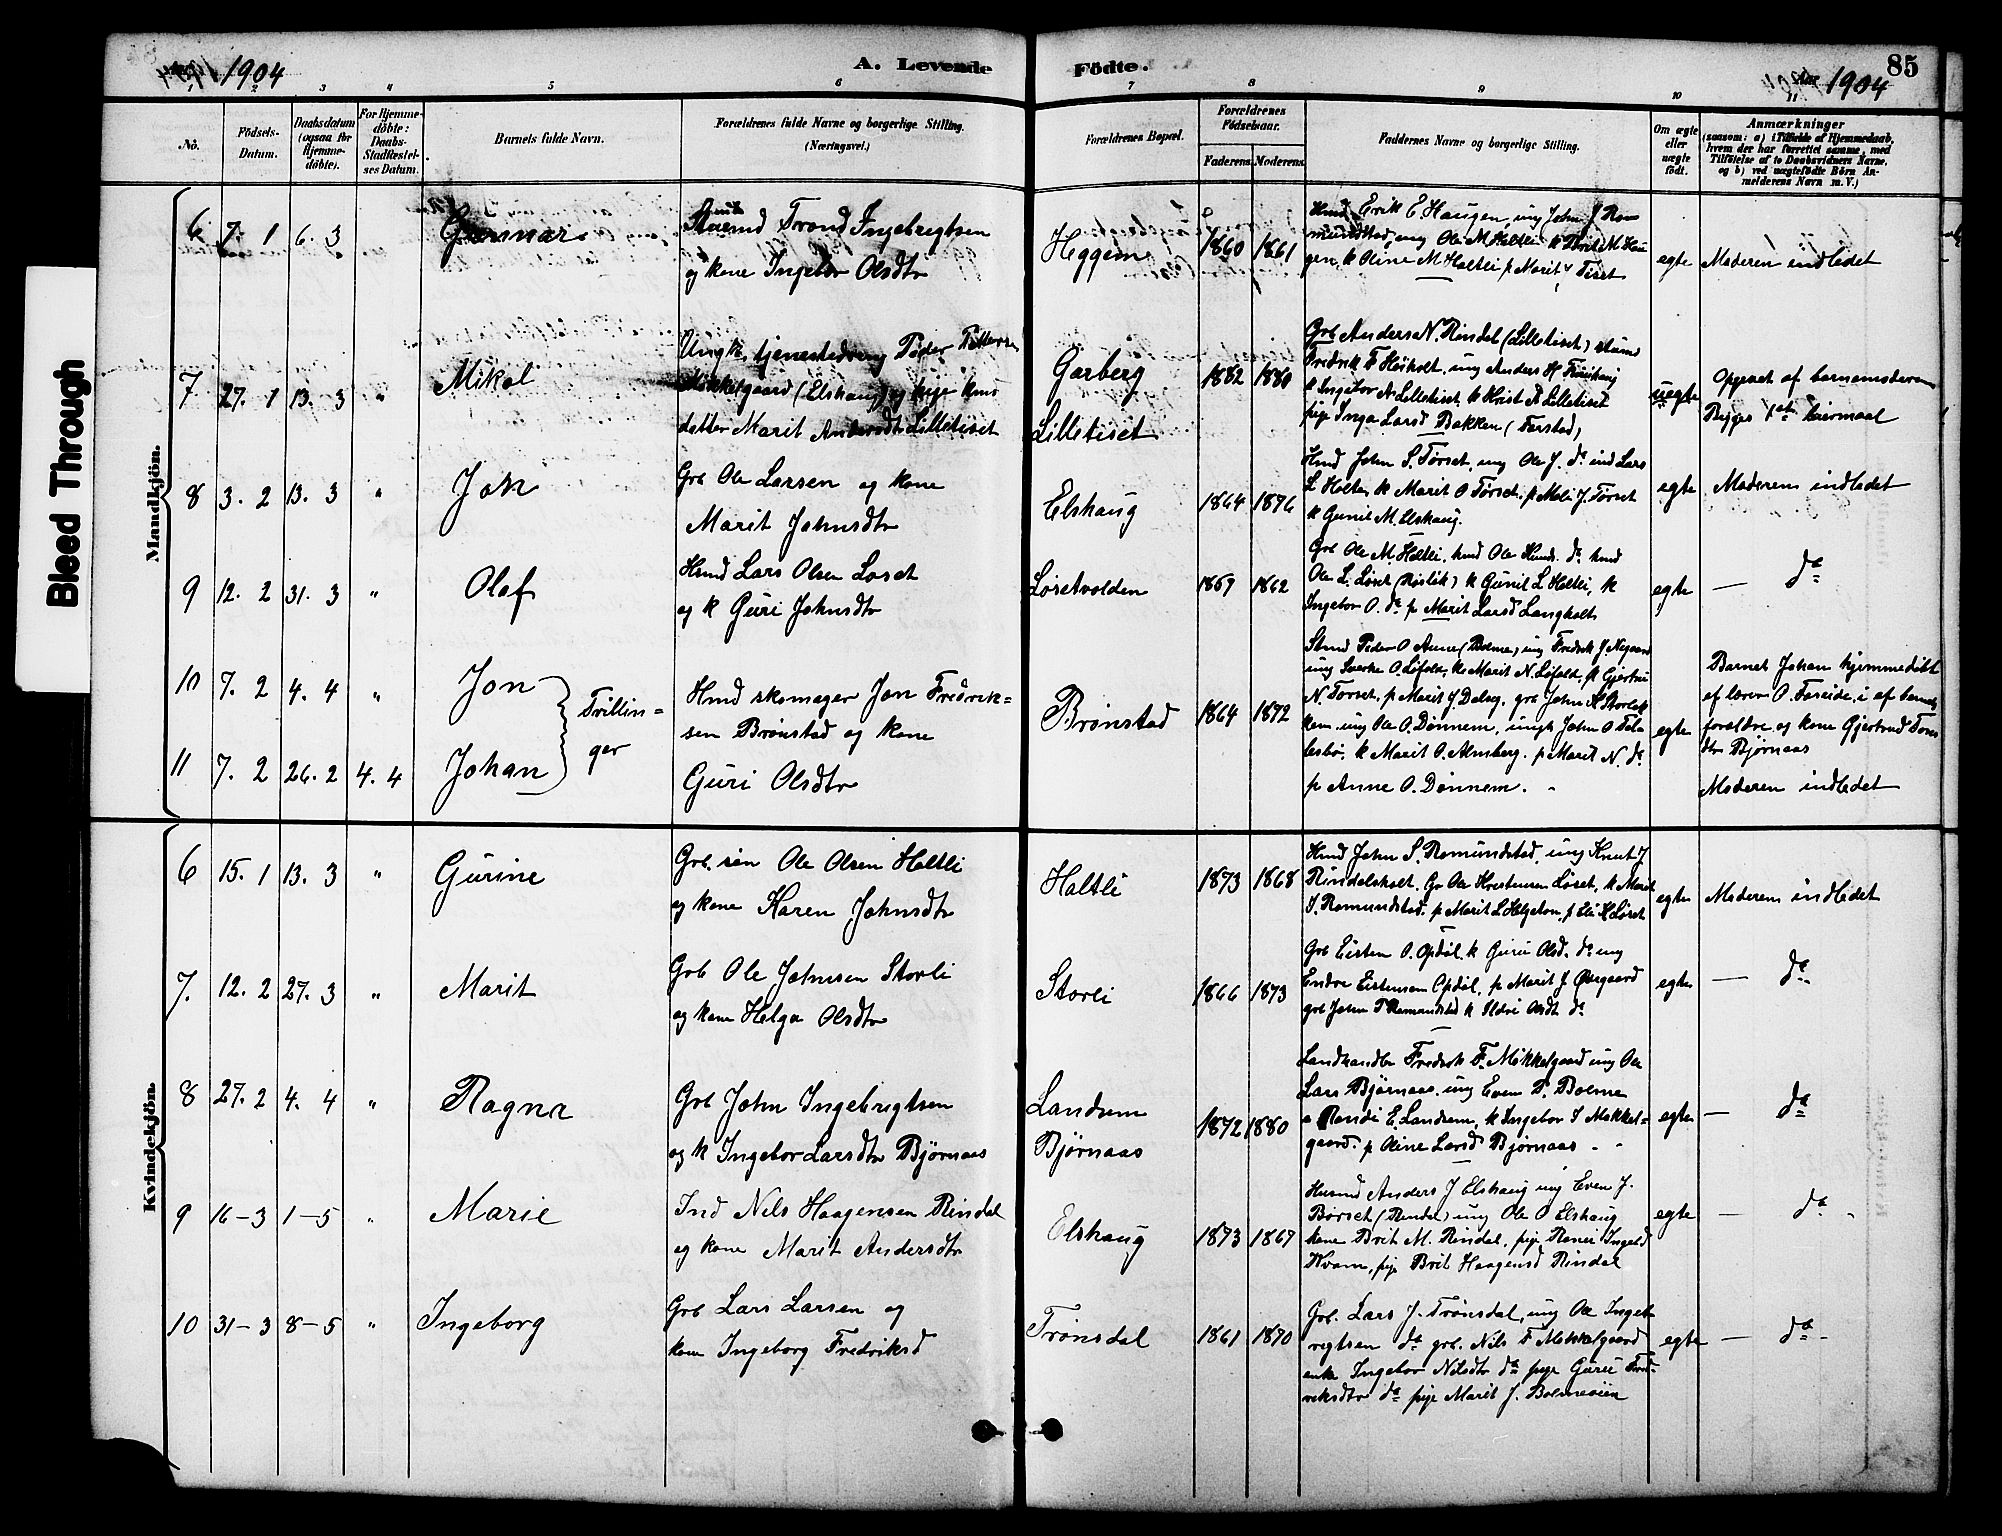 Bleed Through
1904
A. Levende
Födte.
85
1904
1 2 3 4 5 6 7 8 9 10 11
No.
Födsels-
Datum.
Daabsdatum
(ogsaa for
Hjemme-
döbte).
For Hjemme-
döbte:
Daabs-
Stadfæstel-
ses Datum.
Barnets fulde Navn.
Forældrenes fulde Navne og borgerlige Stilling.
(Næringsvei.)
Forældrenes Bopæl.
Forældrenes
Födselsaar.
Faderens. Moderens.
Faddernes Navne og borgerlige Stilling.
Om ægte
eller
uægte
födt.
Anmærkninger
(saasom: a) i Tilfælde af Hjemmedaab,
hvem der har forrettet samme, med
Tilföielse af to Daabsvidners Navne,
og b) ved uægtefödte Börn An-
melderens Navn m. V.)
Mandkjön.
6 7. 1 6. 3 Gunnar
Trond Ingebrigtsen
og kone Ingebor Olsdtr
Heggem 1860 1861
Hmd Erik E Haugen, ung John J Rom
mundstad, ung Ole M Holtli k Marit M Hau
gen, k Oline M Holtli p Marit Tiset
egte Moderen indledet
7 27. 1 13. 3 " Mikal
Ungk. tjenestedreng Peder Pettersen
Mikkelgaard (Elshaug) og pige hus
datter Marit Andersdtr Lilletiset
Garberg
Lilletiset
1882 1880
Grb Anders N. Rindal (Lilletiset) stud
Fredrik F Høiholt, ung Anders H
k Ingebor N Lilletiset, k Krist N Lilletiset
pige Inga Larsd Bakken (Farstad)
uegte Opgivet af barnemoderen
Begges 1ste leiermaal
8 3. 2 13. 3 " Jon
Grb Ole Larsen og kone
Marit Johnsdtr
Elshaug 1864 1876
Hmd John S. Tørset, ung Ole J. do ind Lars
L Holten, k Marit O Tørset, p Mali J. Tørset
k Gunil M. Elshaug.
egte Moderen indledet
9 12. 2 31. 3 " Olaf
Hmd Lars Olsen Løset
og k Guri Johnsdtr
Løsetvolden 1869 1862
Grb Ole M. Holtli, hmd Ole Knuds. do hmd
Ole L. Løset (Røslik) k Gunil L Holtli, k
Ingebor O. do p Marit Larsd Langholt
egte — do
10 7. 2 4. 4 " Jon
11 7. 2 26. 2 4. 4 Johan
Trillin=
ger
Hmd skomager Jon Fredrik=
sen Brønstad og kone
Guri Olsdtr
Brønstad 1864 1872
Stud Peder O Aune (Bolme), ung Fredrik J. Nygaard
ung Sverke O. Løfald, k Marit N. Løfald, p Gjertru
N. Tørset, p Marit J Dalseg, grb John H Storlok
kem, ung Ole O. Dønnem, ungk John O Tal
lesbø, k Marit O. Almberg. p Marit N. do
p Anne O. Dønnem.
egte
Barnet Johan hjemmedøbt
af lærer O. Farseide, i af barnets
forældre og kone Gjertrud Tores
dtr Bjørnaas
Moderen indledet
Kvindekjön.
6 15. 1 13. 3 " Gurine
Grb. søn Ole Olsen Holtli
og kone Karen Johnsdtr
Holtli 1873 1868
Hmd John S. Romundstad, ung Knut J.
Rindalsholt, Gr Ole Kristensen Løset, k Marit
S. Romundstad. p Marit L Helgeton, p Eli K Løset
egte Moderen indledet
7. 12. 2 27. 3 " Marit
Grb Ole Johnsen Storli
og kone Helga Olsdtr
Storli 1866 1873
Grb Eisten O. Opdøl, k Guru Olsd. do ung
Endre Eistensen Opdøl, p Marit J Øvergaard
grb John T Romundstad k Ildri Olsdt do
egte — do
8 27. 2 4. 4 " Ragna
Grb John Ingebrigtsen
og k Ingebor Larsdtr Bjørnaas
Landrem
Bjørnaas
1872 1880
Landhandler Fredrik F. Mikkelgaard ung Ole
Lars Bjørnaas. ung Even P. Bolme
e Randi E. Landrem, k Ingebor S Mikkel=
gaard. p Oline Larsd Bjørnaas
egte — do
9 16-3 1-5 " Marie
Ind Nils Haagensen Rindal
og kone Marit Andersdtr
Elshaug 1873 1867
Husmd Anders J Elshaug ung Even J.
Børset (Rindal) ung Ole O Elshaug
kone Brit M. Rindal, pige Ranei Ingeld
Kvam, pige Brit Haagensd Rindal
egte — do
10 31-3 8-5 " Ingeborg
Grb Lars Larsen og
kone Ingeborg Fredriksd
Trønsdal 1861 1870
Grb. Lars J. Trønsdal, ung Ole Ingeb
rigtsen do grb. Nils F Mikkelgaard
enke Ingebor Nilsdtr do pige Guru Fred-
riksdtr do pige Marit J. Bolmeøien
egte — do